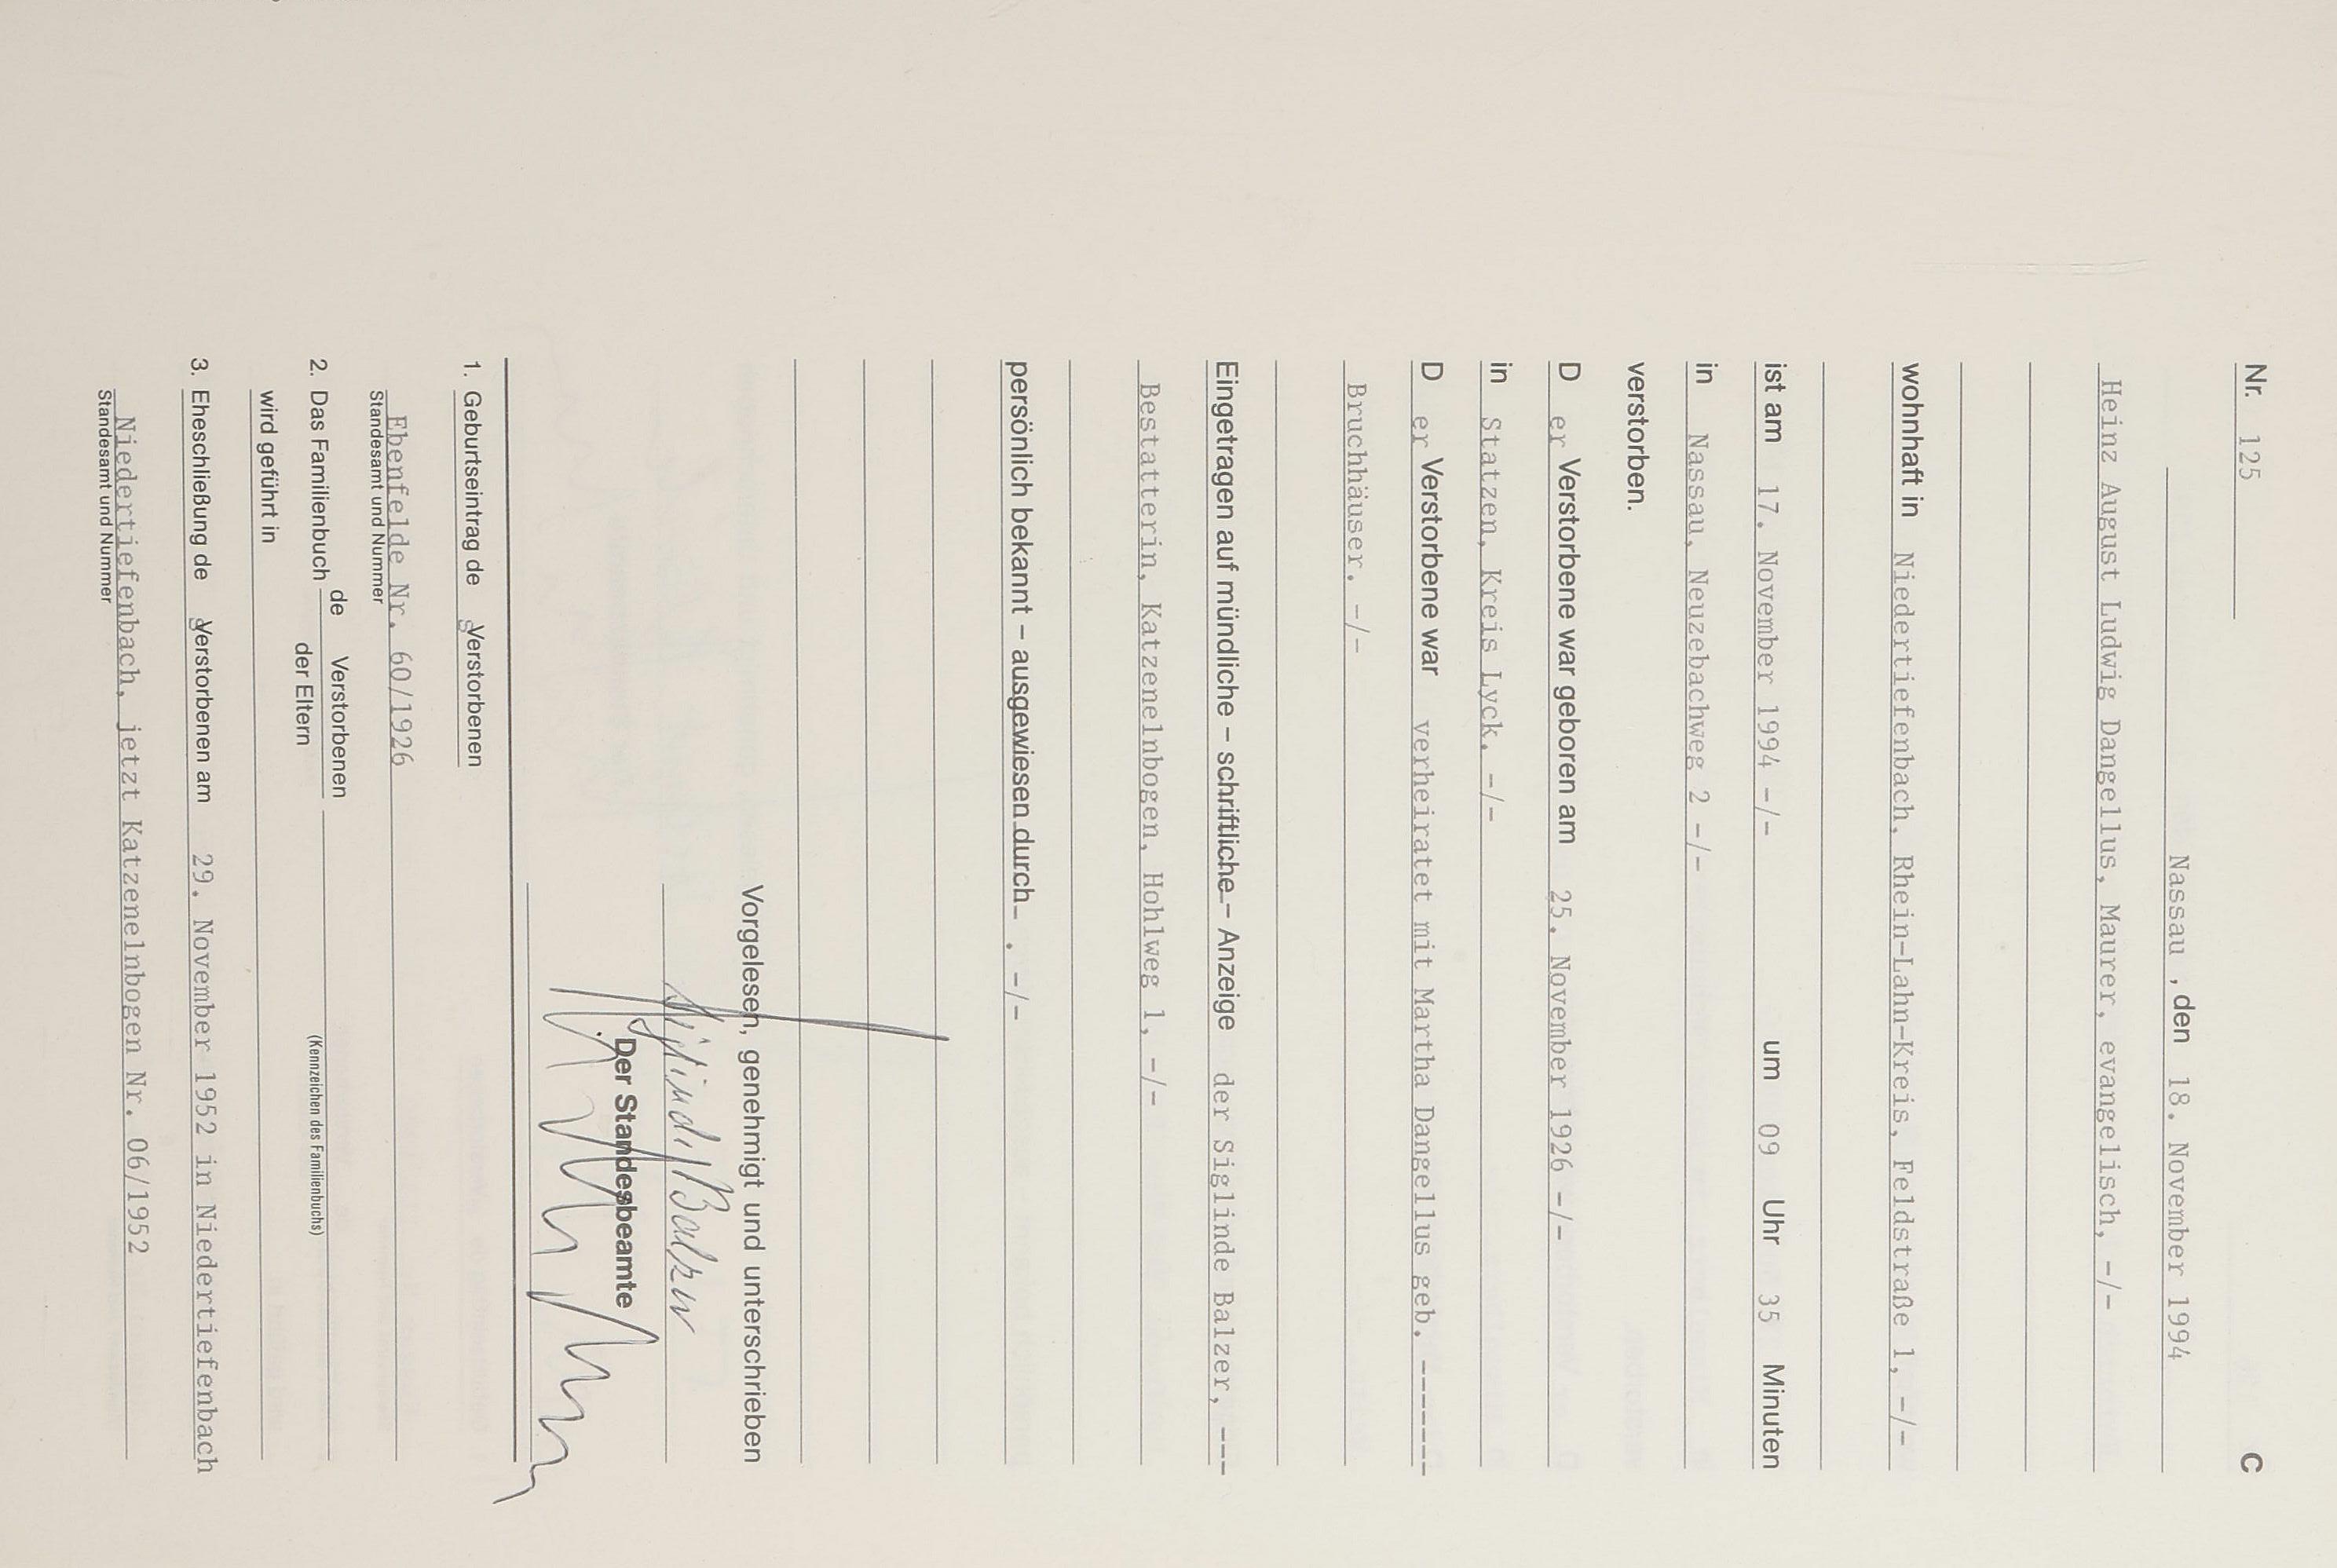 Nr. 125 C
Nassau , den 18. November 1994
Heinz August Ludwig Dangellus, Maurer, evangelisch, -/-
wohnhaft in Niedertiefenbach, Rhein-Lahn-Kreis, Feldstraße 1, -/-
ist am 17. November 1994 -/- um 09 Uhr 35 Minuten
in Nassau, Neuzebachweg 2 -/-
verstorben.
D er Verstorbene war geboren am 25. November 1926 -/-
in Statzen, Kreis Lyck. -/-
D er Verstorbene war verheiratet mit Martha Dangellus geb. -------
Bruchhäuser. -/-
Eingetragen auf mündliche – schriftliche – Anzeige der Siglinde Balzer, ---
Bestatterin, Katzenelnbogen, Hohlweg 1, -/-
persönlich bekannt – ausgewiesen durch . -/-
Vorgelesen, genehmigt und unterschrieben
Siglinde Balzer
Der Standesbeamte
1. Geburtseintrag des Verstorbenen
Ebenfelde Nr. 60/1926
Standesamt und Nummer
2. Das Familienbuch de Verstorbenen
der Eltern
(Kennzeichen des Familienbuchs)
wird geführt in
3. Eheschließung des Verstorbenen am 29. November 1952 in Niedertiefenbach
Niedertiefenbach, jetzt Katzenelnbogen Nr. 06/1952
Standesamt und Nummer